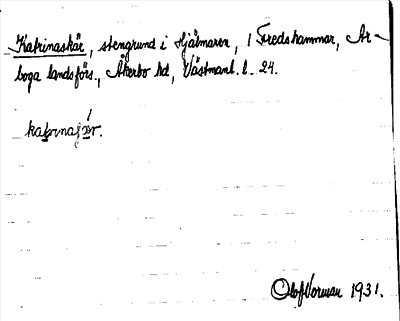 Katrinaskär, stengrund i Hjälmaren, i Fredshammar, Ar-
boga landsförs., Åkerbo hd, Västmanl. l. 24.
Olof Vorman 1931.